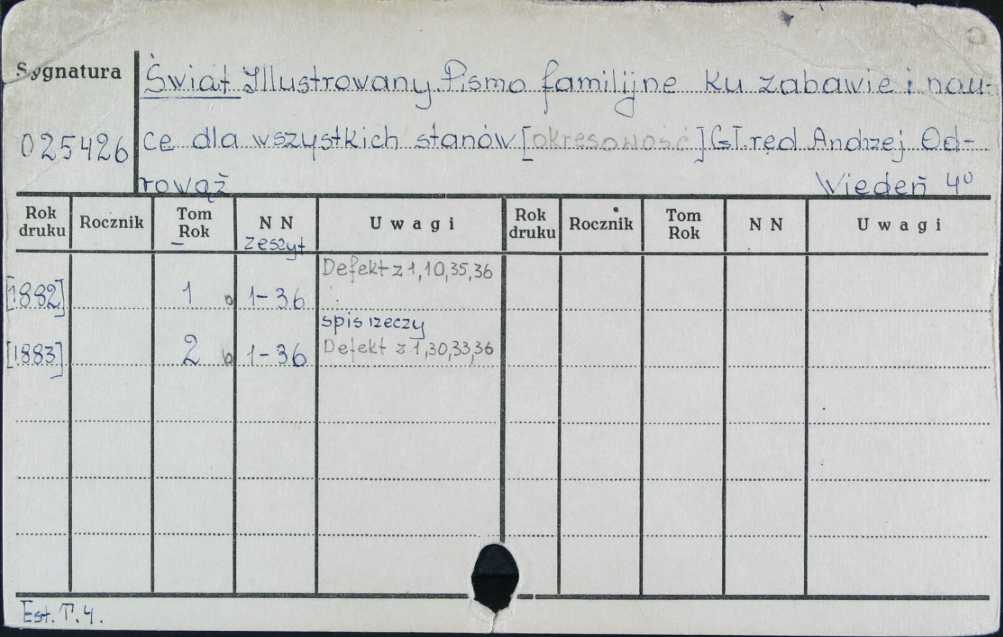 Sygnatura
025426
Świat Illustrowany Pismo familijne ku zabawie i nau-
ce dla wszystkich stanów [okresowość] Gł. red Andrzej Od-
rowąż Wiedeń 4º
Rok druku Rocznik Tom Rok N N zeszyt U w a g i Rok druku Rocznik Tom Rok N N U w a g i
Defekt z 1,10,35,36
[1882] 1 1-36
spis rzeczy
[1883] 2 b 1-36 Defekt z 1,30,33,36
Est. T. 4.